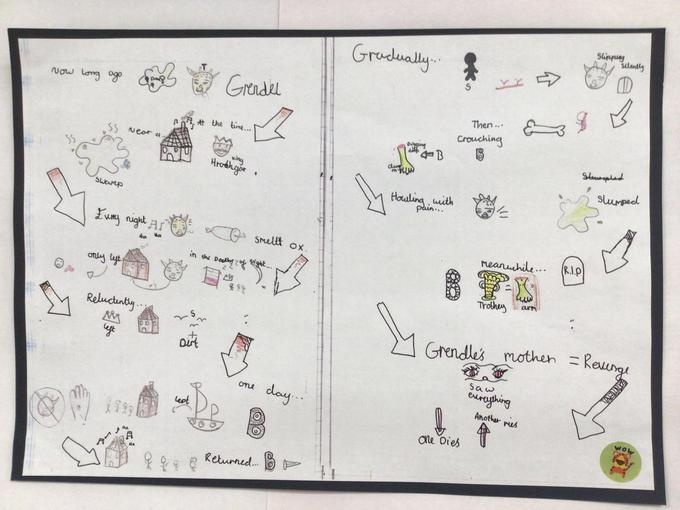 Now long ago
Grendel
Near
At the time...
King
Hrothgar
Swamp
Every night
Smellt Ox.
only left
in the Depths of Night
Reluctently...
left
S
Dirt
one day...
left
B
Returned... B
Gradually...
S
Slipping
Silently
Then...
Crouching
B
B
Howling with
pain...
Slumped
meanwhile...
B
=
R.I.P
Trothey
arm
Grendle's mother = Revenge
Saw
everything
Another rises
One Dies
WOW